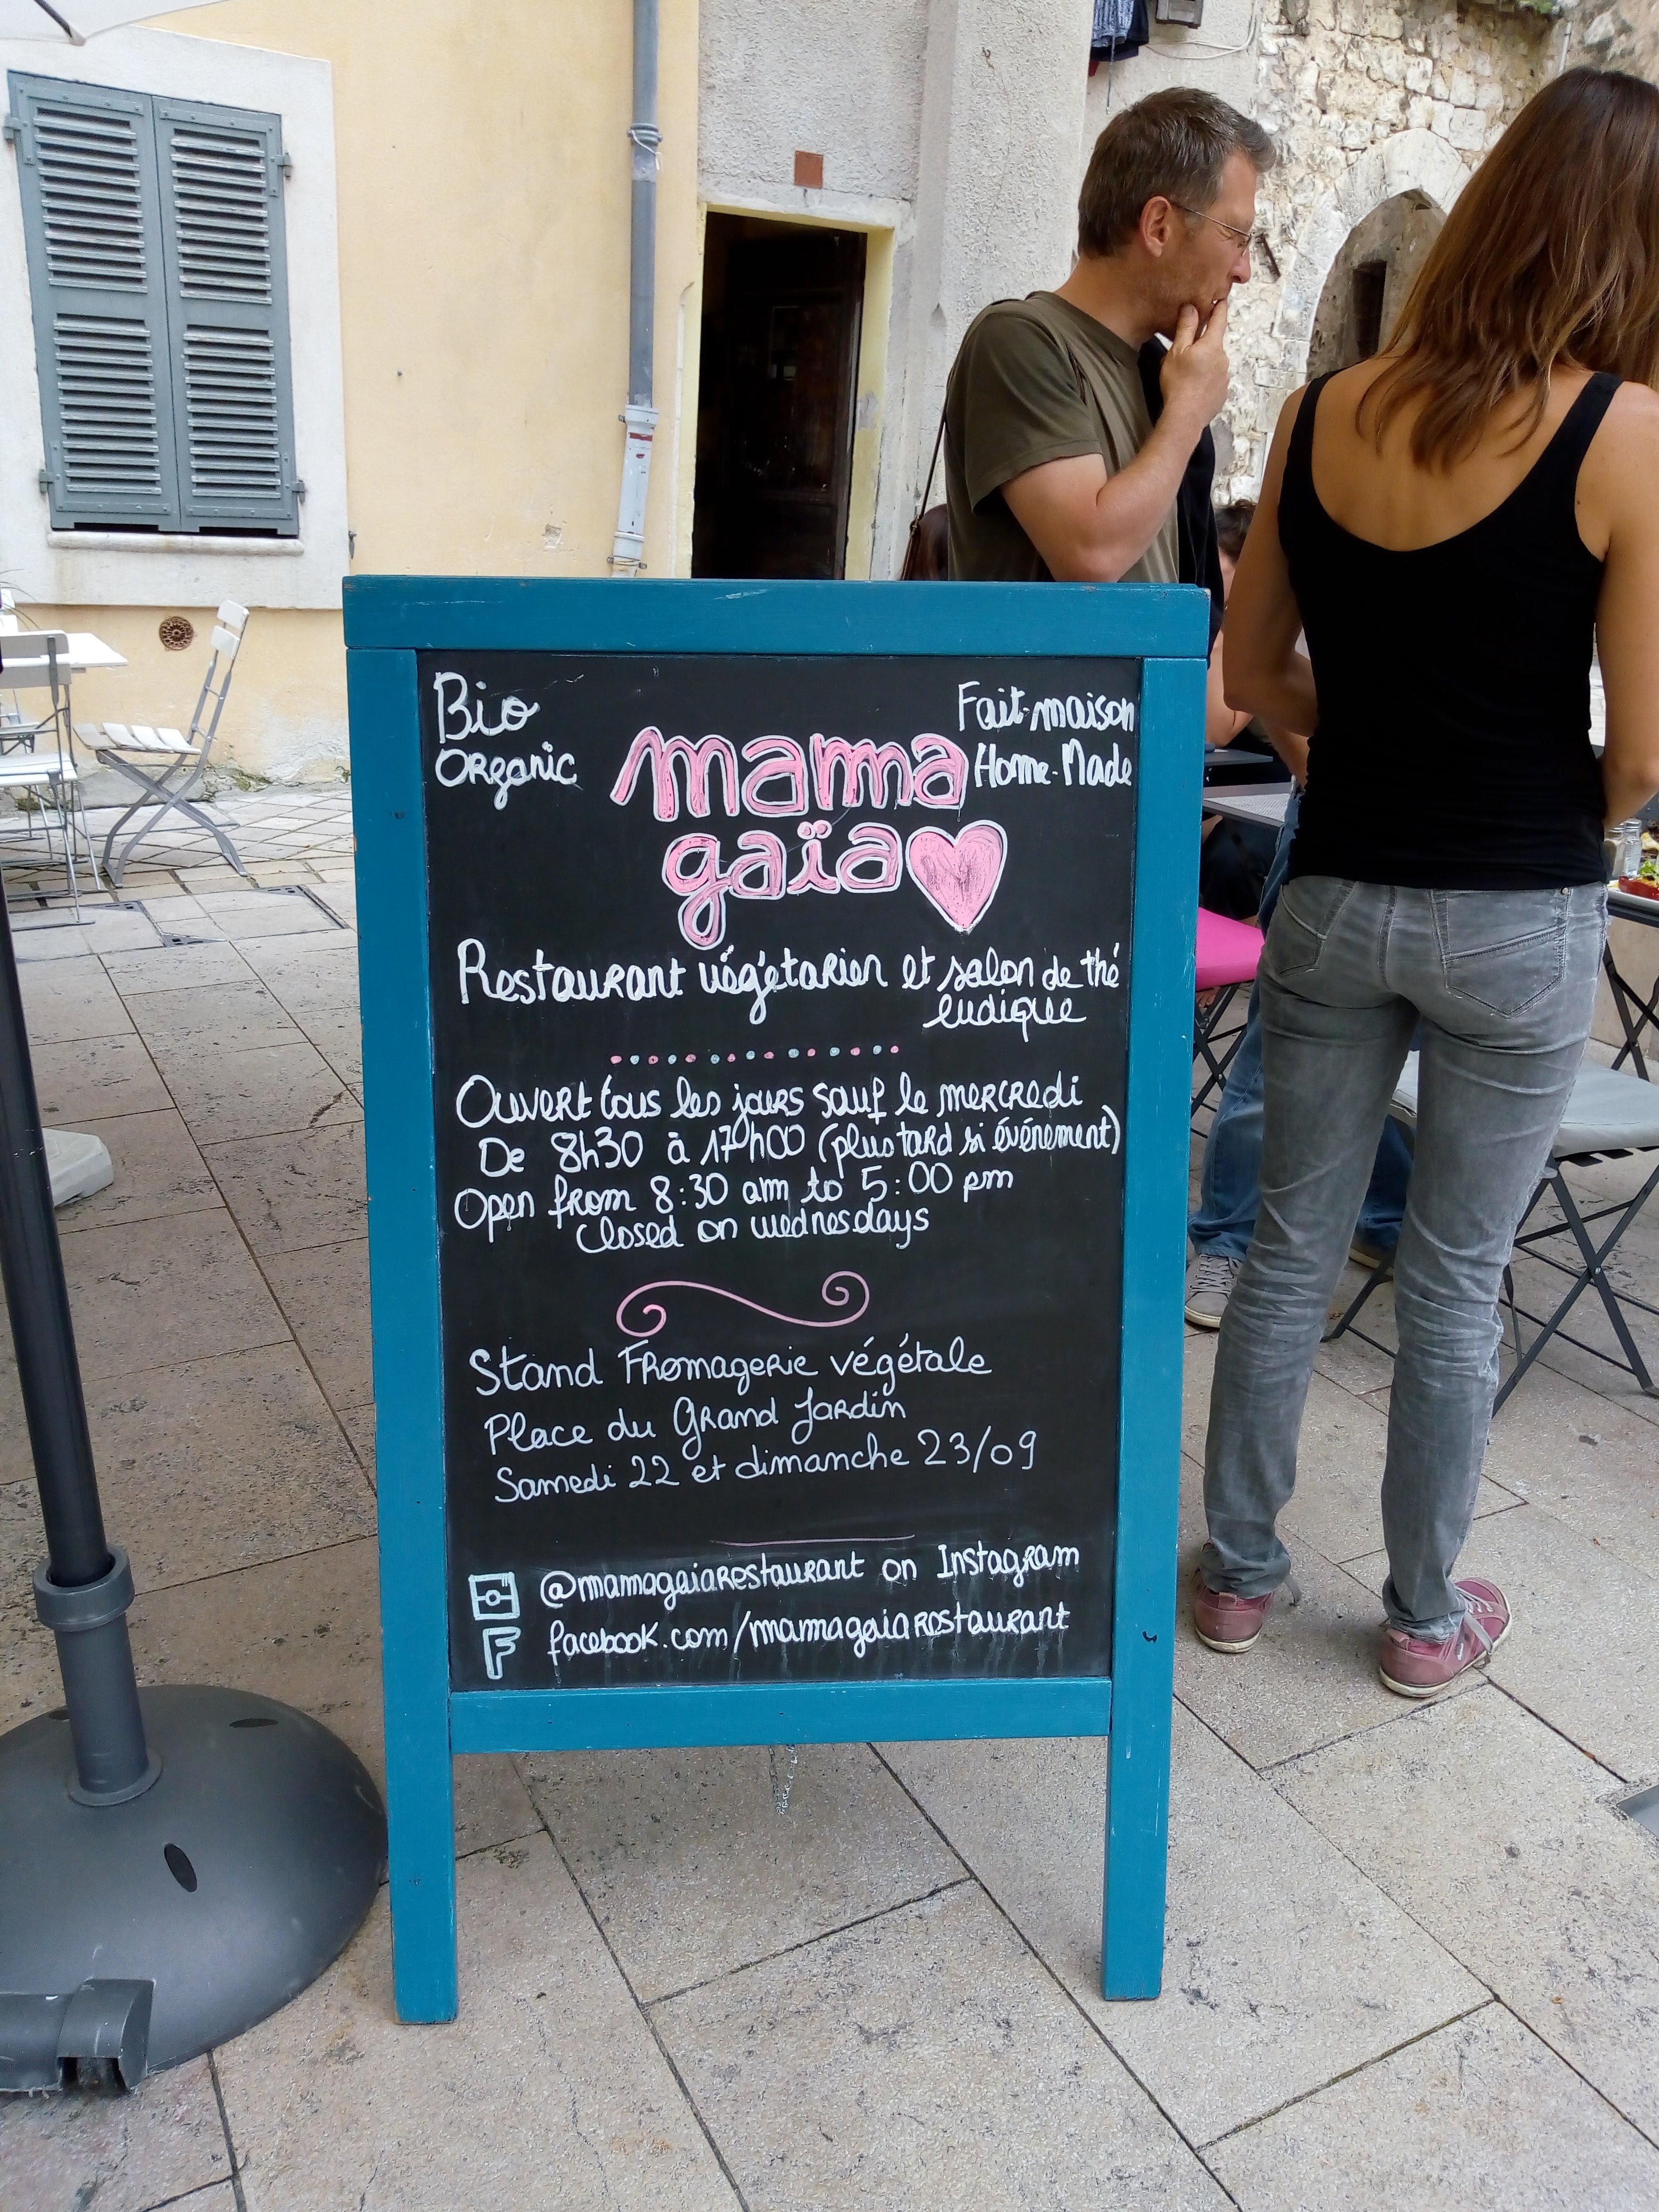 Bio
Organic
Fait-maison
Home-Made
mama
gaïa
Restaurant végétarien et salon de thé
ludique
Ouvert tous les jours sauf le mercredi
De 8h30 à 17h00 (plus tard si événement)
Open from 8:30 am to 5:00 pm
Closed on wednesdays
Stand Fromagerie végétale
Place du Grand Jardin
Samedi 22 et dimanche 23/09
@mamagaiarestaurant on Instagram
F facebook.com/mamagaiarestaurant